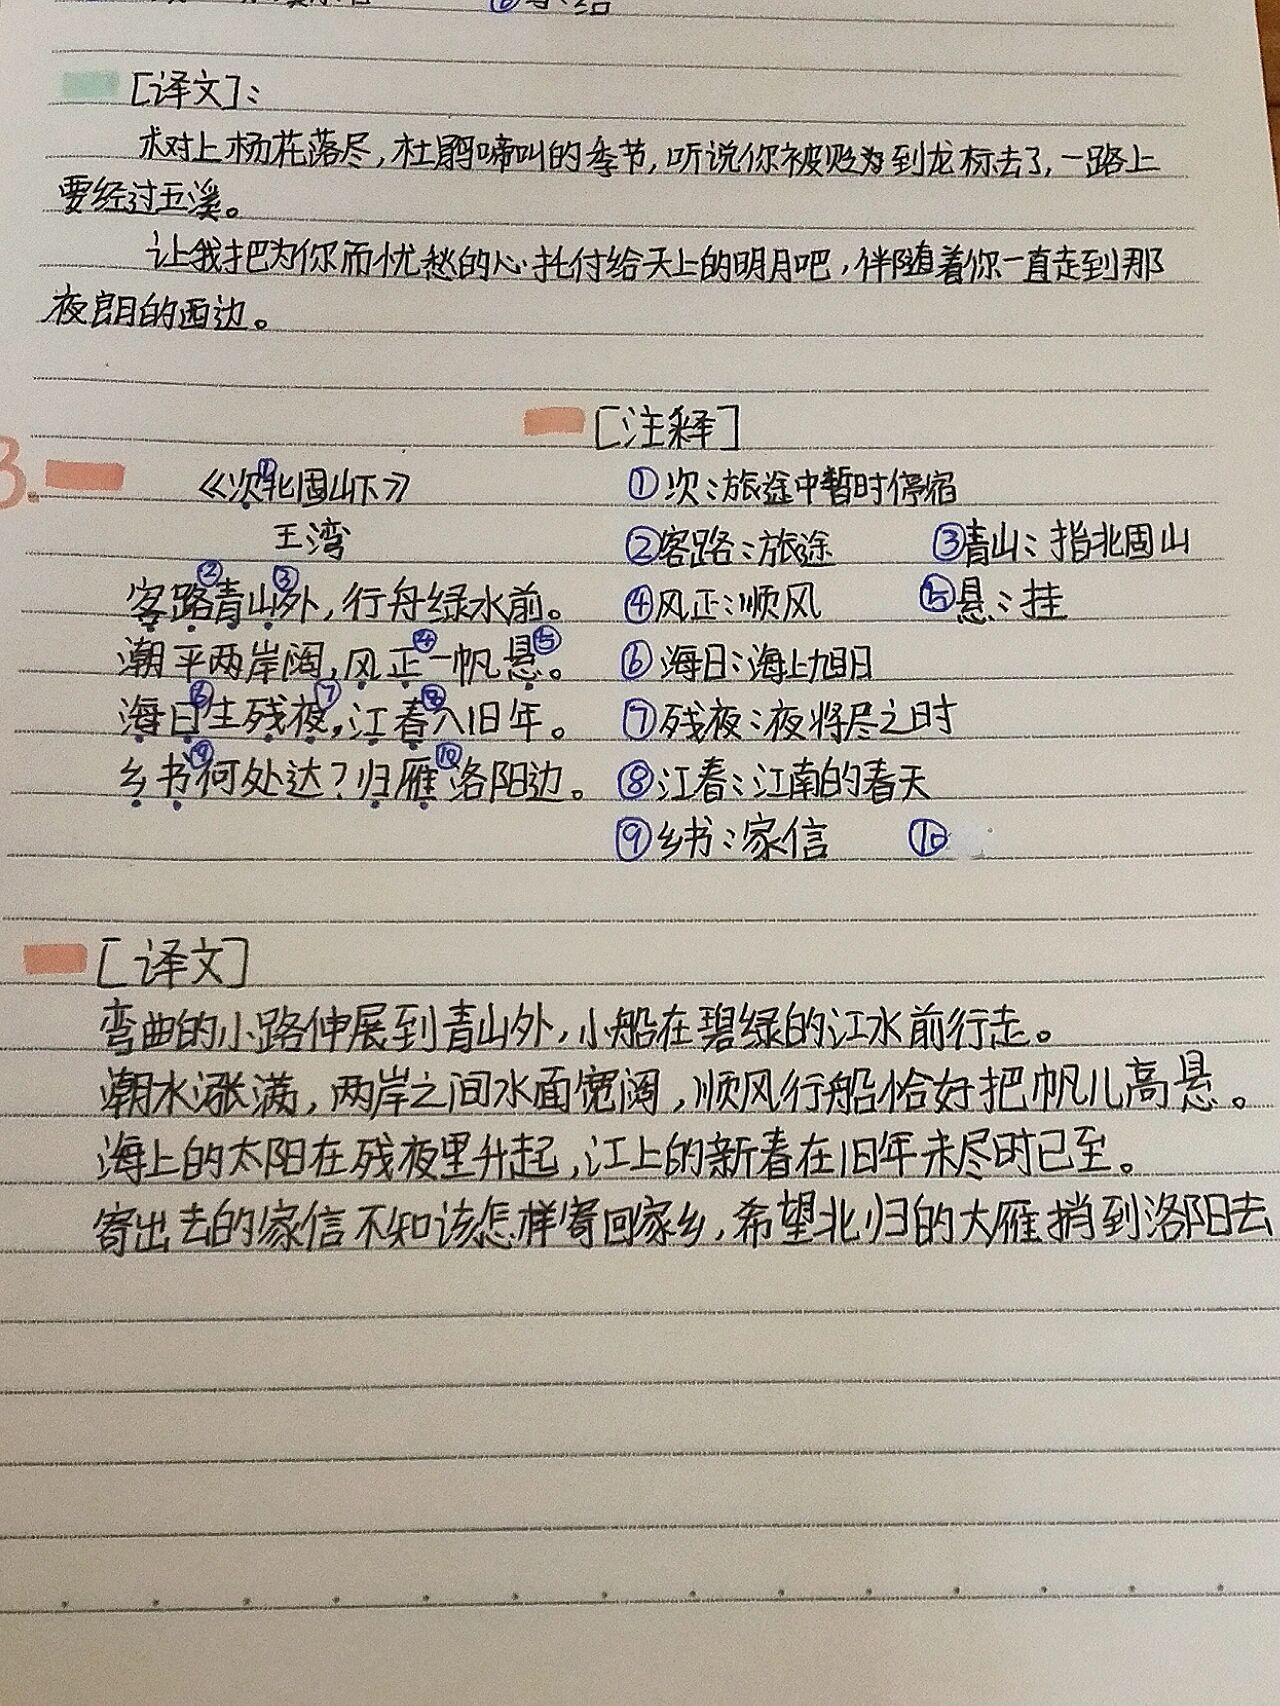 [译文]:
树上杨花落尽,杜鹃啼叫的季节,听说你被贬为到龙标去了,一路上
要经过五溪。
让我把为你而忧愁的心托付给天上的明月吧,伴随着你一直走到那
夜郎的西边。
[注释]
3. 《次①北固山下》 ①次:旅途中暂时停宿
王湾 ②客路:旅途 ③青山:指北固山
客路②青山③外,行舟绿水前。 ④风正:顺风 ⑤悬:挂
潮平两岸阔,风正④一帆悬⑤。 ⑥海日:海上旭日
海日⑥生残夜⑦,江春⑧入旧年。 ⑦残夜:夜将尽之时
乡书⑨何处达?归雁⑩洛阳边。 ⑧江春:江南的春天
⑨乡书:家信 ⑩
[译文]
弯曲的小路伸展到青山外,小船在碧绿的江水前行走。
潮水涨满,两岸之间水面宽阔,顺风行船恰好把帆儿高悬。
海上的太阳在残夜里升起,江上的新春在旧年未尽时已至。
寄出去的家信不知该怎样寄回家乡,希望北归的大雁捎到洛阳去